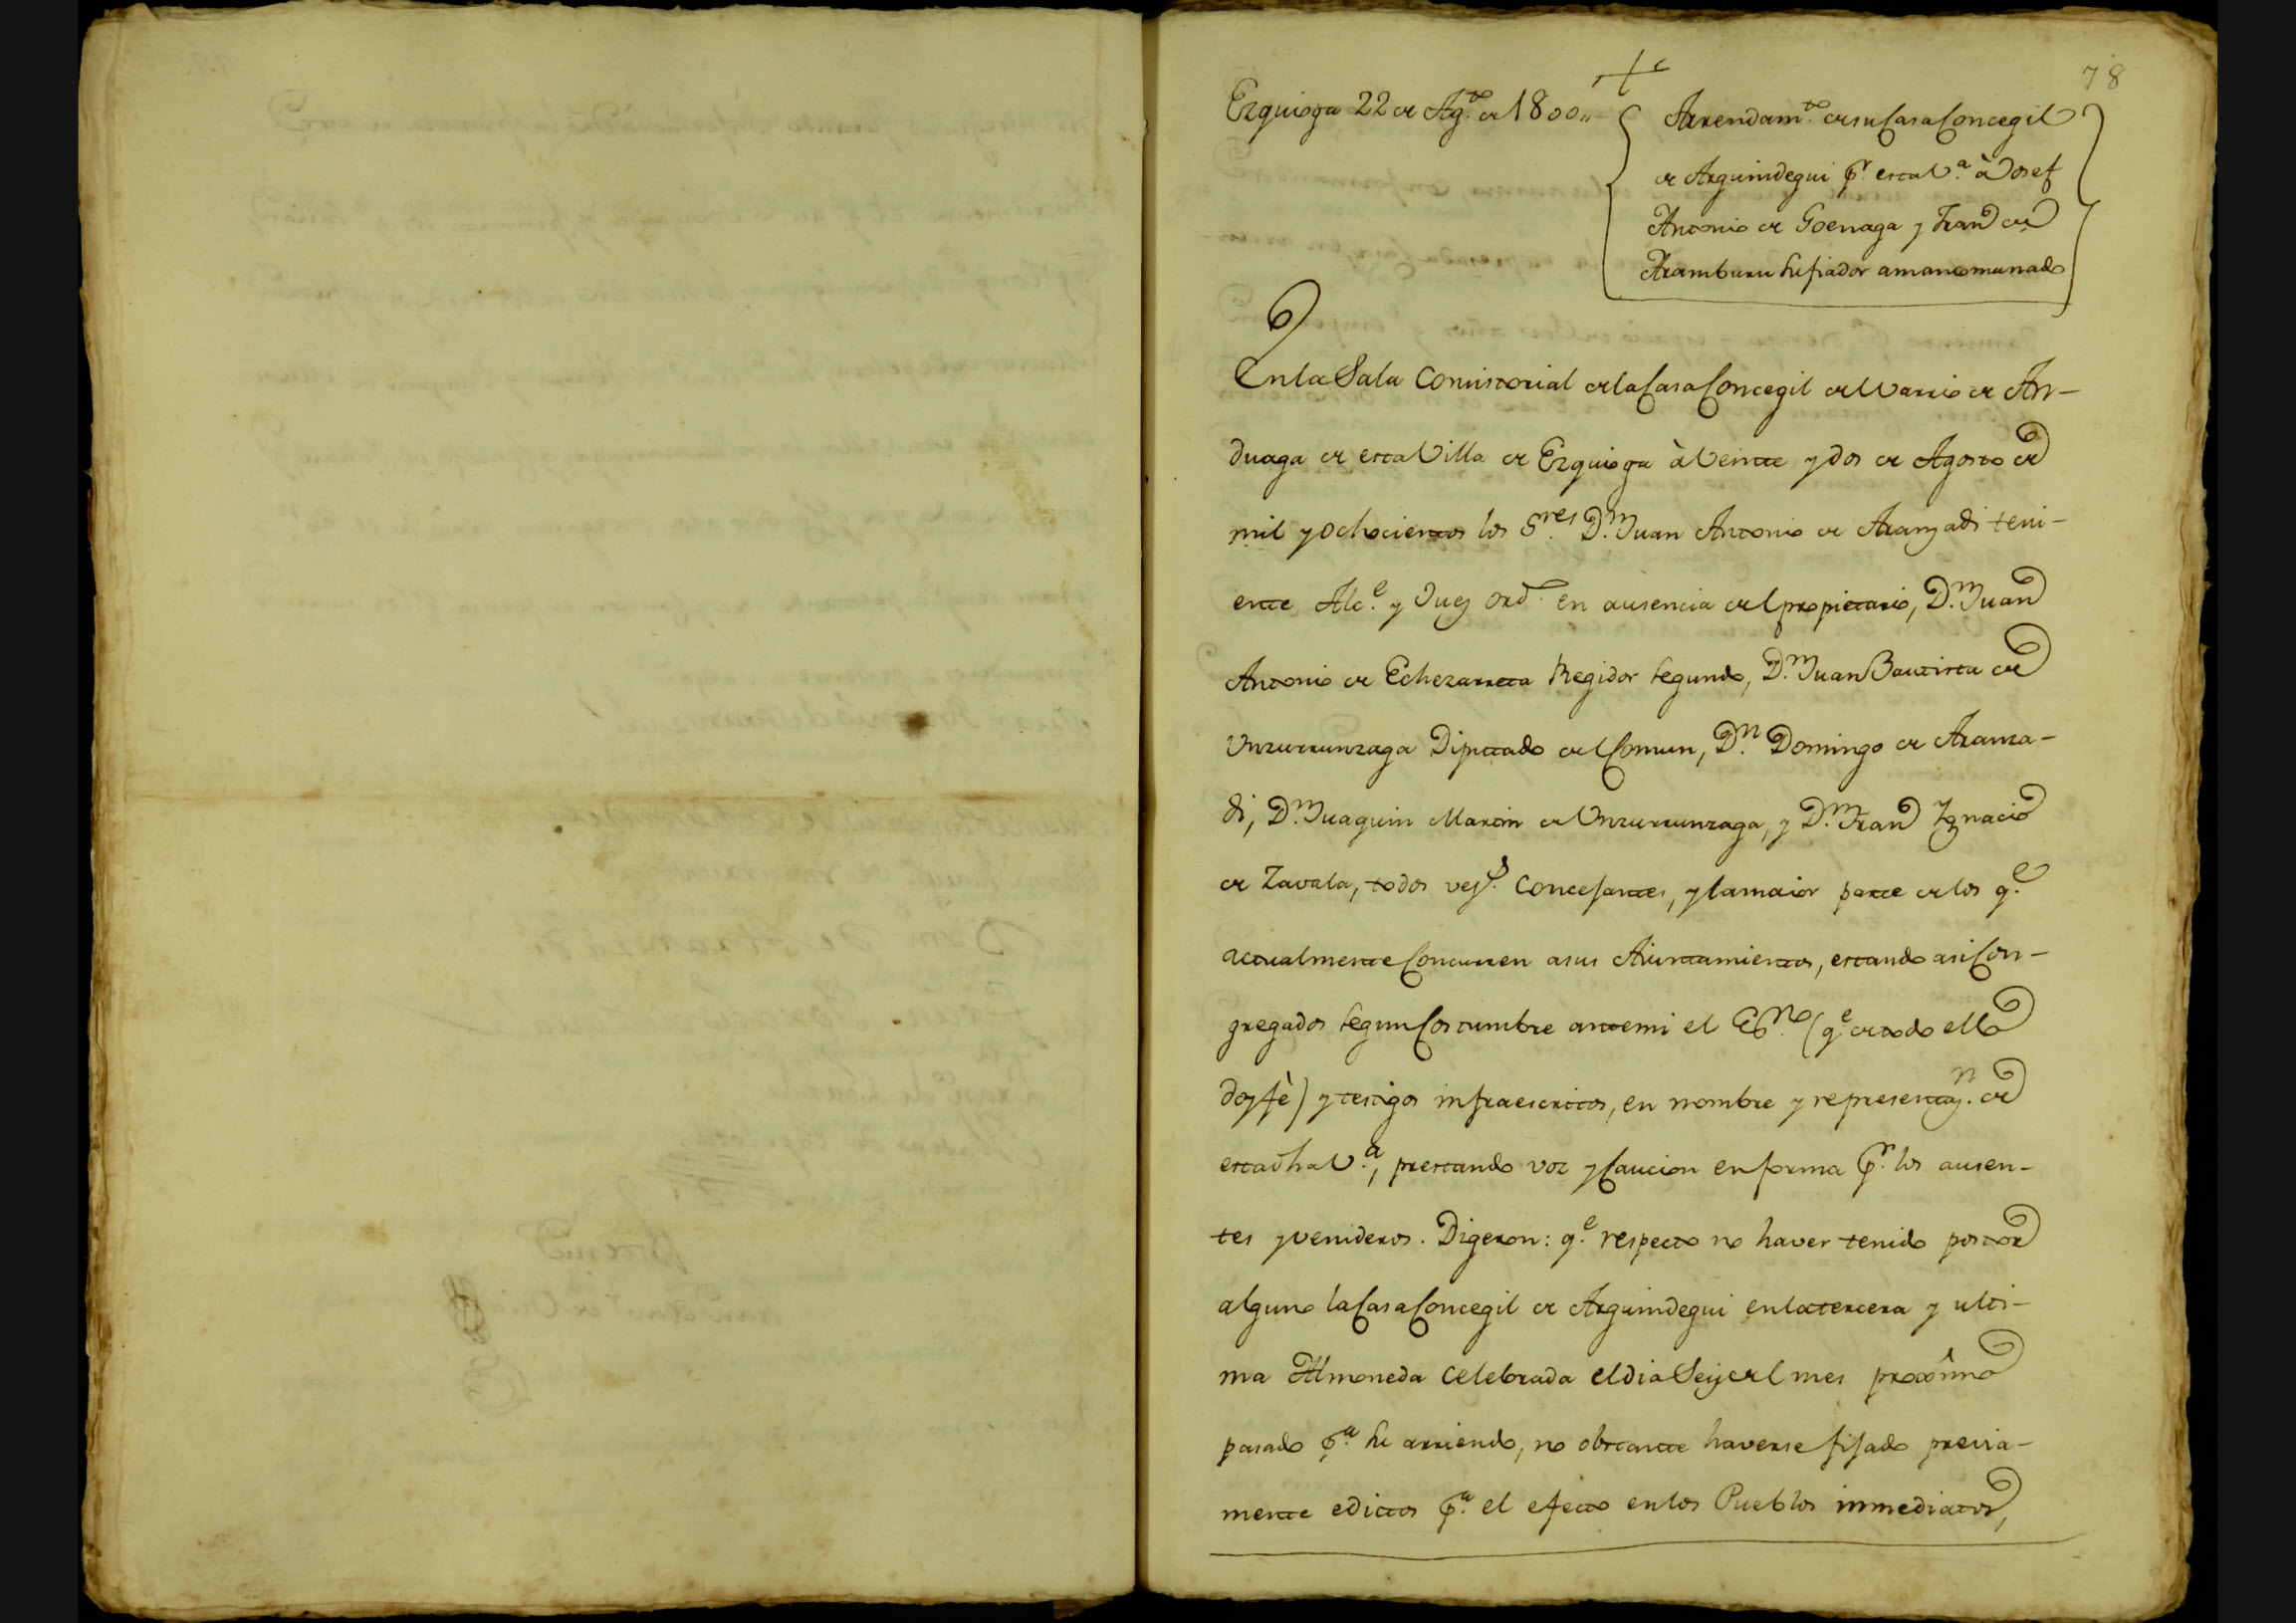 78
Ezquioga 22 de Ag.to de 1800,,
Arrendam.to de su Casa Concegil
de Arguindegui p.r esta V.a à Josef
Antonio de Goenaga y Fran.co de
Aramburu su fiador amancomunado
En la Sala Comistorial de la Casa Concegil del Varrio de An-
duaga de esta Villa de Ezquioga à Veinte y dos de Agosto de
mil y ochocientos los S.res D.n Juan Antonio de Aranzadi teni-
ente Alc.e y Juez ord.o en ausencia del propietario, D.n Juan
Antonio de Echezarreta Regidor segundo, D.n Juan Bautista de
Vnzurrunzaga Diputado del Comun, D.n Domingo de Aranza-
di, D.n Juaquin Martin de Vnzurrunzaga, y D.n Fran.co Ygnacio
de Zavala, todos vez.s Concejantes, y la maior parte de los q.e
actualmente Concurren a sus Aiuntamientos, estando asi Con-
gregados segun Costumbre ante mi el Es.no (q.e de todo ello
doy fè) y testigos infraescritos, en nombre y representaz.n de
esta dha V.a, prestando voz y Caucion en forma p.r los ausen-
tes y venideros. Digeron: q.e respecto no haver tenido postor
alguno la Casa Concegil de Arguindegui en la tercera y ulti-
ma Almoneda Celebrada el dia Seis del mes proximo
pasado p.a su arriendo, no obstante haverse fijado previa-
mente edictos p.a el efecto en los Pueblos inmediatos,